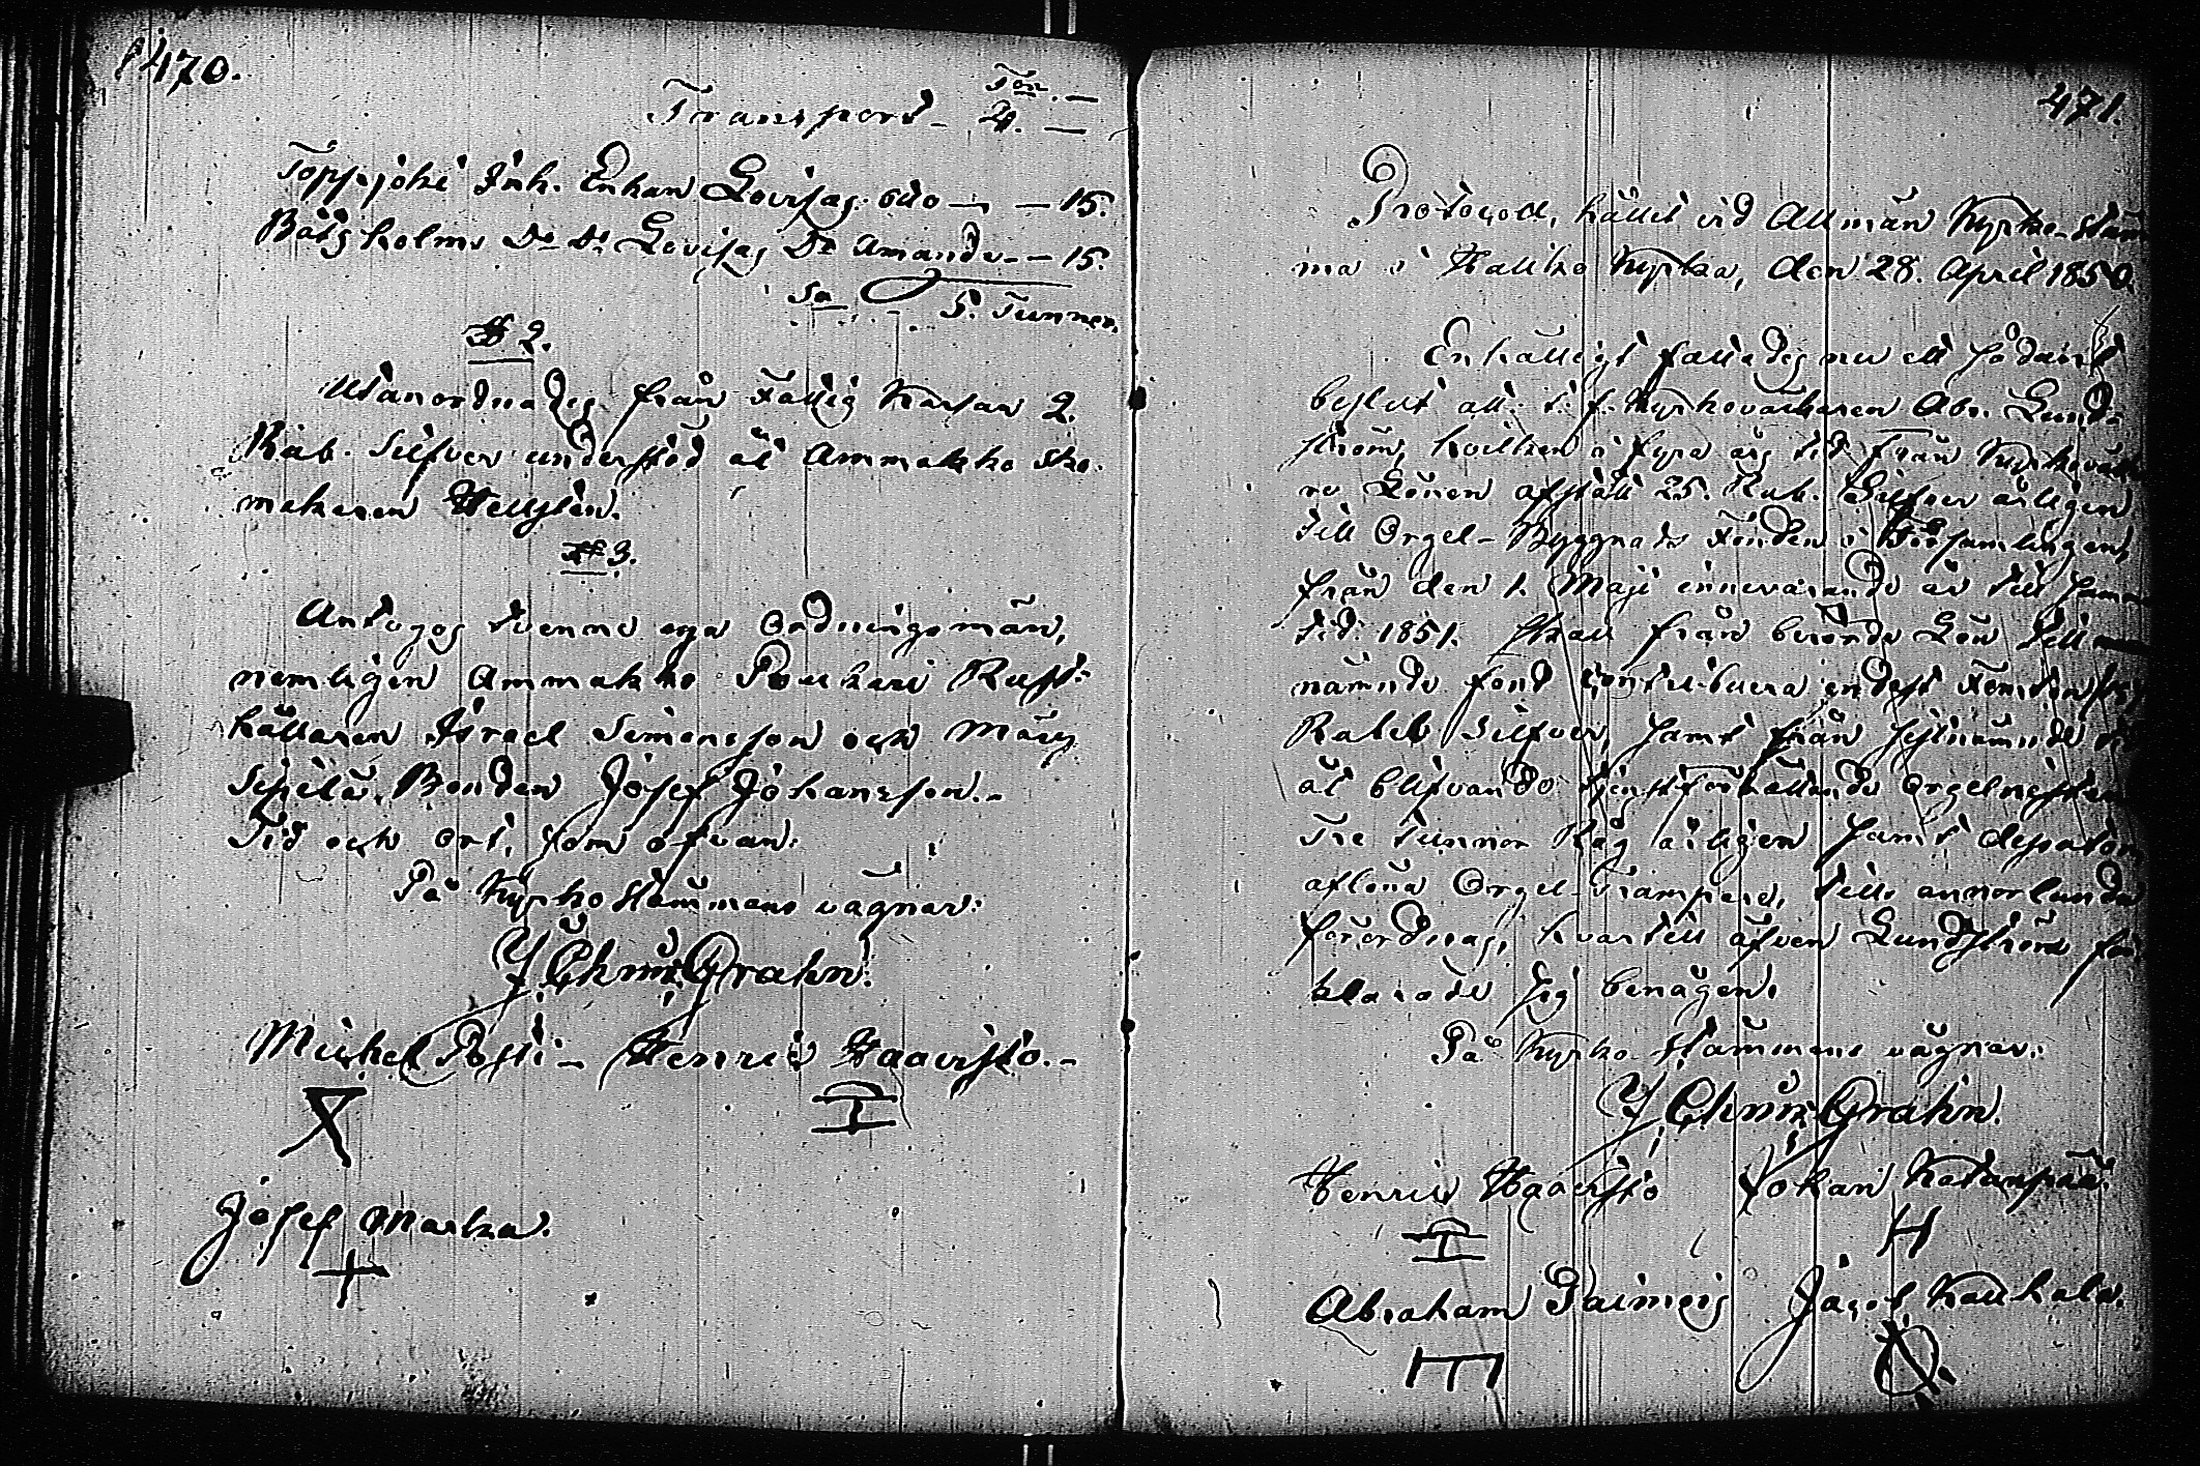 470.
Ton. —
Transport — 4. —
Topjoki Inh. Enkan Lovisas. — — 15.
Båtsholms Do. Do. Lovisas Dr Amanda — — 15.
Sa 5. Tunnor.
§ 2.
Utanordnades från Fattig Kassan 2.
Rub. Silfver understöd åt Ammakko Sko-
makaren Hellstén.
§ 3.
Antogos tvenne nya Ordningsmän,
nemligen Ammakko Poukari Rust-
hållaren Israel Simonsson och Märy
Sipilä Bonden Josef Johansson.-
Tid och ort, som ofvan.
På Kyrko Stämmans vägnar:
J. Chr. Grahn.
Michel Posti — Henric Haavisto. —
Josef Marka.
471.
Protocoll, hållet vid Allmän Kyrko-Stäm-
ma i Halikko Kyrka, den 28. April 1850.
Enhälligt fattades nu ett sådant
beslut att t. f. Kyrkovaktaren Abr. Lund-
ström, hvilken i fyra års tid från Kyrkovakta-
re Lönen afstått 25. Rub. Silfver årligen
till Orgel-Byggnads Fonden i Församlingen,
från den 1. Maji innevarande år till samma
tid 1851. skall från berörde Lön till
nämnde fond contribuera endast Femton
Rubel Silfver, samt från sistnämnde
åt blifvande tjenstförrättande Orgelnisten
Tre tunnor Råg årligen samt dessutom
aflöna Orgel-Trampare, tills annorlunda
förordnas, hvartill äfven Lundström för-
klarade sig benägen.
På Kyrko-stämmans vägnar:
J. Chr. Grahn.
Henric Haavisto Johan Katanpää.
Abraham Paimois Jacob Kaukola.